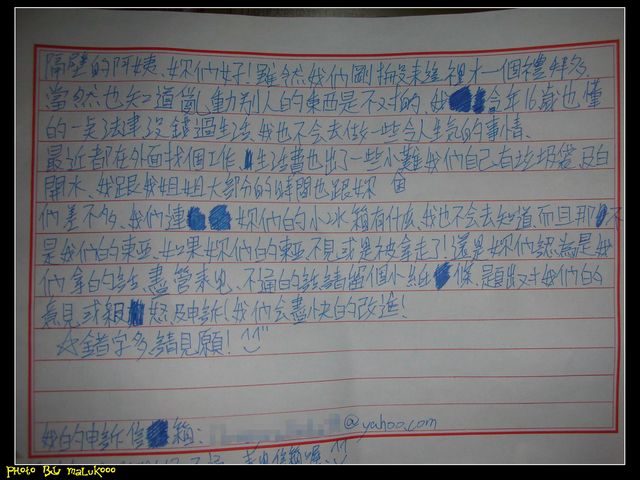 隔壁的阿姨、妳們好!雖然我們剛搬來進裡才一個禮拜多
當然也知道亂動別人的東西是不對的 我今年16歲也懂
的一点法律沒錯過生活、我也不会去做一些令人生氣的事情、
最近都在外面找個工作、生活費也出了一些小難我們自己有垃圾袋及白
開水、我跟我姐姐大部分的時間也跟妳
們差不多、我們連 妳們的小冰箱有什麼、我也不会去知道、而且那不
是我們的東西、如果妳們的東西不見或是被拿走了!還是妳們認為是我
們拿的話、儘管來問、不通的話請留個小紙條、題出对我們的
意見或 怒及申訴!我們会盡快的改進!
☆錯字多請見願! ^^"
我的申訴信箱:
@yahoo.com
Photo By maLukooo